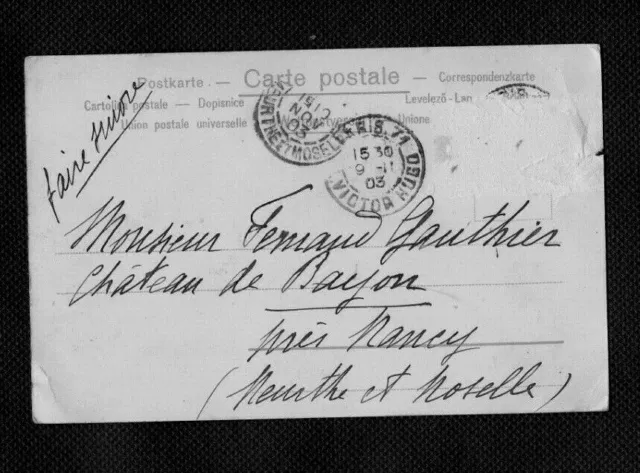 Postkarte - Carte postale - Correspondenzkarte
Cartolina postale - Dopisnice Levelező-Lap
Union postale universelle Unione
faire suivre
MEURTHE ET MOSELLE
PARIS 71
15 30
9 - 11
03
VICTOR HUGO
Monsieur Fernand Gauthier
Château de Bayon
près Nancy
(Meurthe et Moselle)